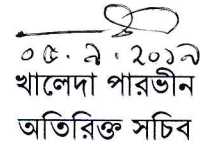 ০৫.৯.২০১৯
খালেদা পারভীন
অতিরিক্ত সচিব